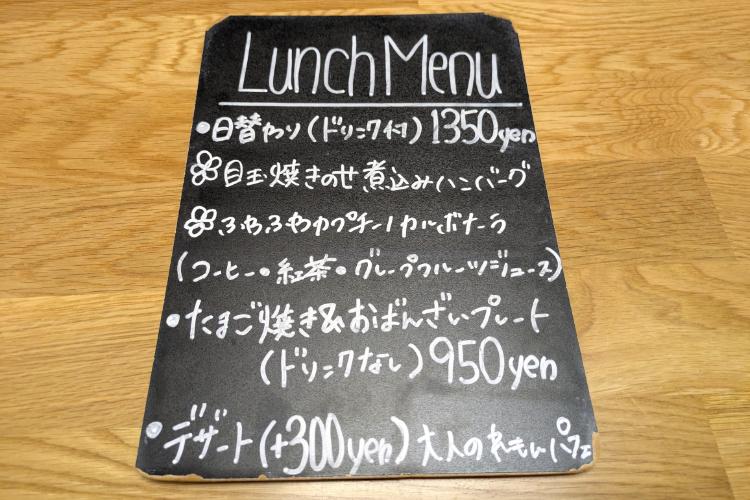 Lunch Menu
・日替わり(ドリンク付)1350yen
目玉焼きのせ煮込みハンバーグ
ふわふわカプチーノカルボナーラ
(コーヒー・紅茶・グレープフルーツジュース)
・たまご焼き&おばんざいプレート
(ドリンクなし)950yen
・デザート(+300yen)大人の パフェ